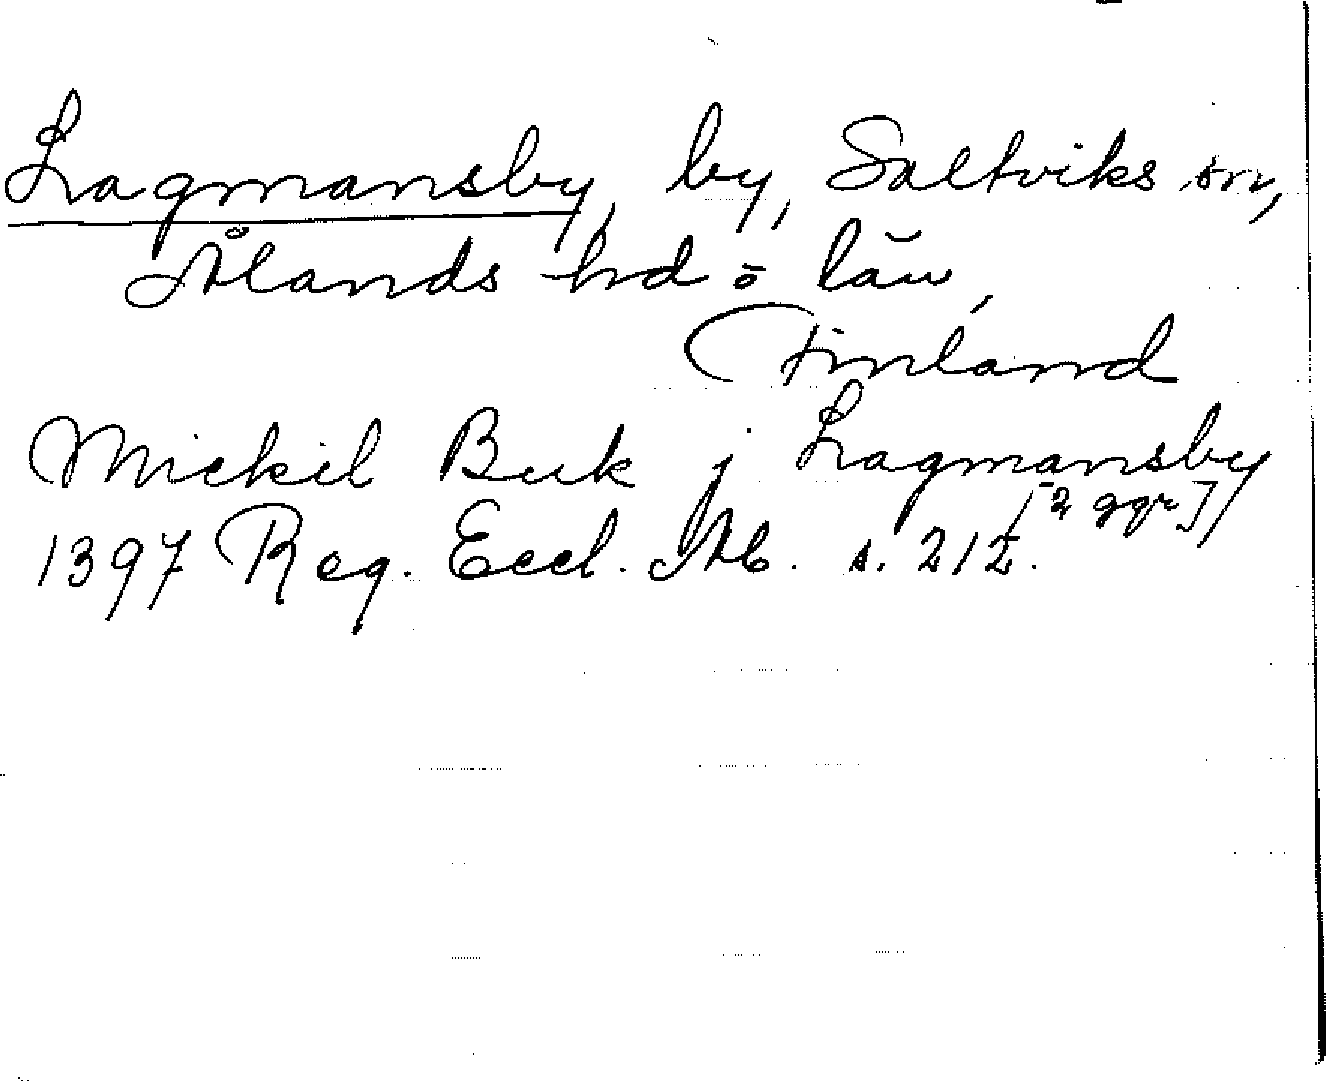 Lagmansby, by, Saltviks sn,
Ålands hd o län,
Finland
Mickil Buk j Lagmansby
[2 ggr]
1397 Reg. Eccl. Ab. s. 212.